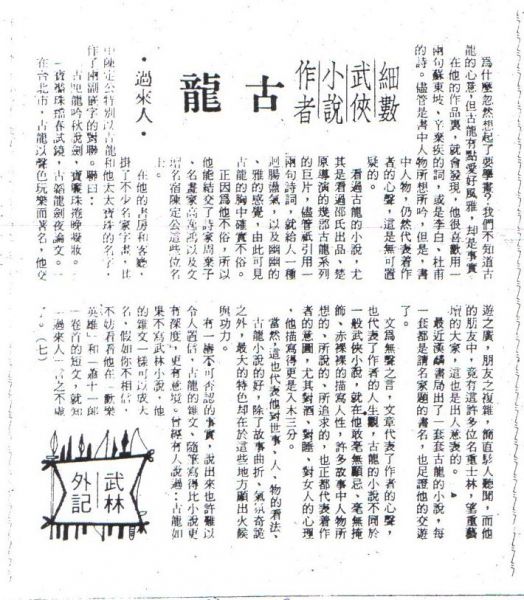 細數
武俠
小說
作者
古龍
・過來人・
為什麼忽然想起了要學畫?我們不知道古
龍的心意,但古龍有點愛好風雅,却是事實
。在他的作品裏,就會發現,他很喜歡用一
兩句蘇東坡、辛棄疾的詞,或是李白、杜甫
的詩。儘管是書中人物所想所吟,但是,書
中人物,仍然代表著作
者的心聲,這是無可置
疑的。
看過古龍的小說,尤
其是看過邵氏出品、楚
原導演的幾部古龍系列
的巨片,儘管祇引用一
兩句詩詞,就給人一種
迴腸盪氣,以及幽幽的
、雅的感覺,由此可見
古龍的胸中確實不俗。
正因為他不俗,所以
他能結交了詩家周棄子
、名畫家高逸鴻以及文
壇名宿陳定公這些位名
士。
在他的書房和客廳,
掛了不少名家字畫,其
中陳定公特別以古龍和他太太寶珠的名子,
作了兩副嵌字的對聯。聯曰:
古匣龍吟秋說劍,寶簾珠捲晚凝妝。
寶靨珠璫春試鏡,古韜龍劍夜論文。
在台北市,古龍以聲色玩樂而著名,他交
遊之廣,朋友之複雜,簡直駭人聽聞,而他
的朋友中,竟有這許多位名重士林,望重藝
壇的大家,這也是出人意表的。
最近漢麟書局出了一套套古龍的小說,每
一套都是請名家題的書名,也足證他的交遊
了。
文為無聲之言,文章代表了作者的心聲,
也代表了作者的人生觀,古龍的小說不同於
一般武俠小說,就在他敢毫無顧忌、毫無掩
飾、赤裸裸的描寫人性,許多故事中人物所
想的、所說的、所追求的,也正都代表着作
者的意圖,尤其對酒、對賭、對女人的心理
,他描寫得更是入木三分。
當然,這也代表他對世事、人、物的看法、
古龍小說的好,除了故事曲折、氣氛奇詭
之外,最大的特色却在於這些地方顯出火候
與功力。
有一樁不可否認的事實,說出來也許難以
令人置信,古龍的雜文、隨筆寫得比小說更
有深度,更有意境。曾經有人說過:古龍如
果不寫武俠小說,他
的雜文一樣可以成大
名,假如你不相信,
不妨看看他在「歡樂
英雄」和「蕭十一郎
」卷首的短文,就知
「過來人」言之不虛
了。(七)
武林
外記